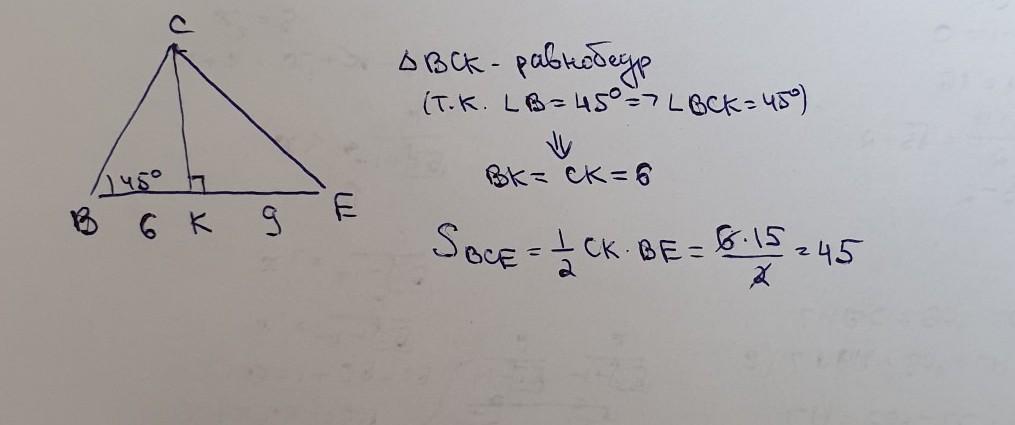 C
45°
B 6 K 9 E
Δ BCK - равнобедр
(т.к. ∠B = 45° => ∠BCK = 45°)
⇓
BK = CK = 6
S BCE = 1/2 CK · BE = 6·15/2 = 45